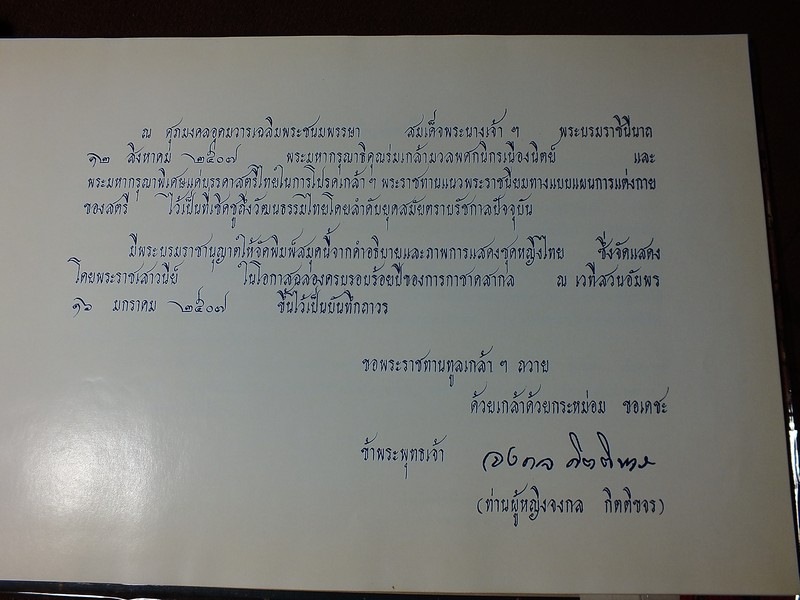 ณ ศุภมงคลอุดมวารเฉลิมพระชนมพรรษา สมเด็จพระนางเจ้า ฯ พระบรมราชินีนาถ
๑๒ สิงหาคม ๒๕๐๗ พระมหากรุณาธิคุณร่มเกล้ามวลพศกนิกรเนืองนิตย์ และ
พระมหากรุณาพิเศษแด่บรรดาสตรีไทยในการโปรดเกล้า ฯ พระราชทานแนวพระราชนิยมทางแบบแผนการแต่งกาย
ของสตรี ไว้เป็นที่เชิดชูถึงวัฒนธรรมไทยโดยลำดับยุคสมัยตราบรัชกาลปัจจุบัน
มีพระบรมราชานุญาตให้จัดพิมพ์สมุดนี้จากคำอธิบายและภาพการแสดงชุดหญิงไทย ซึ่งจัดแสดง
โดยพระราชเสาวนีย์ ในโอกาสฉลองครบรอบร้อยปีของการกาชาดสากล ณ เวทีสวนอัมพร
๑๖ มกราคม ๒๕๐๗ ขึ้นไว้เป็นบันทึกถาวร
ขอพระราชทานทูลเกล้า ฯ ถวาย
ด้วยเกล้าด้วยกระหม่อม ขอเดชะ
ข้าพระพุทธเจ้า จงกล กิตติขจร
(ท่านผู้หญิงจงกล กิตติขจร)